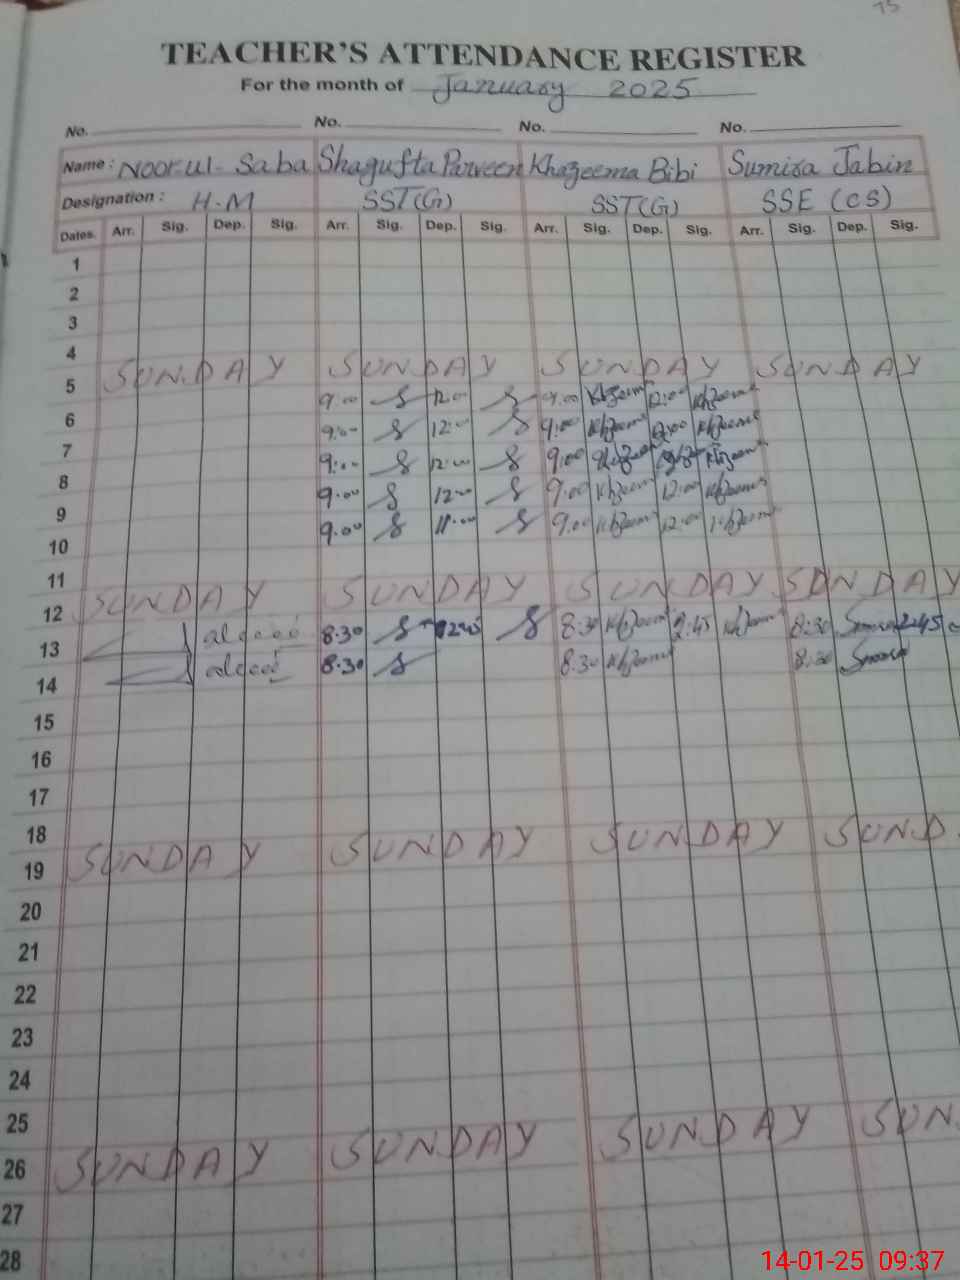 15
TEACHER'S ATTENDANCE REGISTER
For the month of January 2025
No. No. No. No.
Name: Noor-ul-Saba Shagufta Parveen Khazeema Bibi Sumira Jabin
Designation: H.M SST(G) SST(G) SSE (CS)
Dates. Arr. Sig. Dep. Sig. Arr. Sig. Dep. Sig. Arr. Sig. Dep. Sig. Arr. Sig. Dep. Sig.
1
2
3
4
5 SUNDAY SUNDAY SUNDAY SUNDAY
6 9:00 12:00 9:00 12:00
7 9:00 12:00 9:00 12:00
8 9:00 12:00 9:00
9 9:00 12:00 9:00 12:00
10 9:00 11:00 9:00 12:00
11
12 SUNDAY SUNDAY SUNDAY SUNDAY
13 8:30 8:30 2:45 8:30 2:45
14 8:30 8:30 8:30
15
16
17
18
19 SUNDAY SUNDAY SUNDAY SUND
20
21
22
23
24
25
26 SUNDAY SUNDAY SUNDAY SUN
27
28
14-01-25 09:37